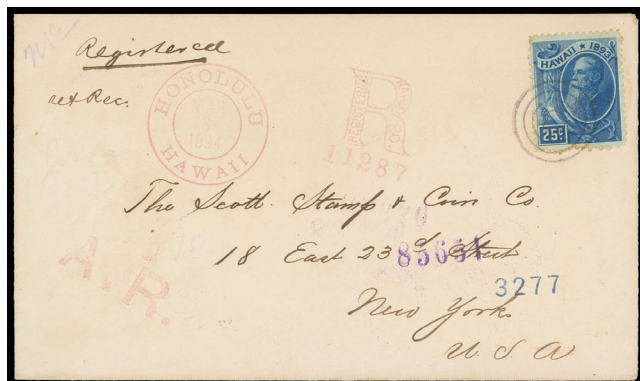 Registered
ret Rec.
HONOLULU
1894
HAWAII
R
REGISTERED
11287
HAWAII ★ 1893
25¢
The Scott Stamp & Coin Co.
18 East 23d Street
A.R.
3277
New York
U S A